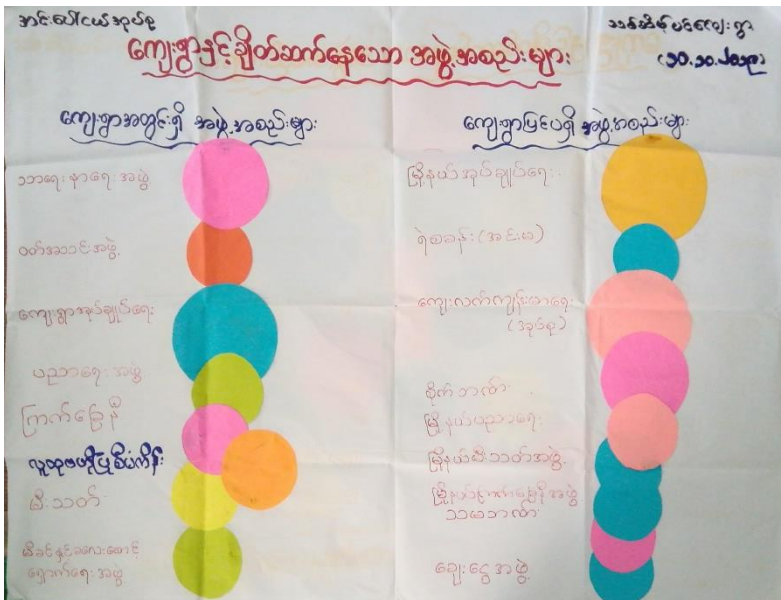 အင်းပေါင်ငယ်အုပ်စု
သစ်ဆိမ့်ပင်ကျေးရွာ
(၁၀.၁၀.၂၀၁၉)
ကျေးရွာနှင့်ချိတ်ဆက်နေသော အဖွဲ့အစည်းများ
ကျေးရွာအတွင်းရှိ အဖွဲ့အစည်းများ
သာရေးနာရေးအဖွဲ့
ဝတ်အသင်းအဖွဲ့
ကျေးရွာအုပ်ချုပ်ရေး
ပညာရေးအဖွဲ့
ကြက်ခြေနီ
လူထုဗဟိုပြုစီမံကိန်း
မီးသတ်
မိခင်နှင့်ကလေးစောင့်
ရှောက်ရေးအဖွဲ့
ကျေးရွာပြင်ပရှိ အဖွဲ့အစည်းများ
မြို့နယ်အုပ်ချုပ်ရေး
ရဲစခန်း (အင်းမ)
ကျေးလက်ကျန်းမာရေး
(အုပ်စု)
စိုက်ဘဏ်
မြို့နယ်ပညာရေး
မြို့နယ်မီးသတ်အဖွဲ့
မြို့နယ်ကြက်ခြေနီအဖွဲ့
သမဘဏ်
ချေးငွေအဖွဲ့